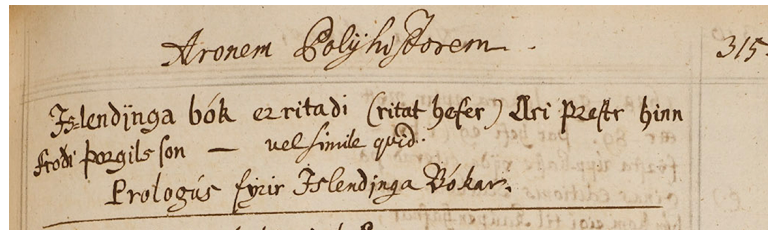 Aronem Polyhistorem. 315.
Islendinga bók er ritadi (ritat hefer) Ari Prestr hinn
frodi Þorgils son — vel simile quid.
Prologús fyrir Islendinga Bókar.